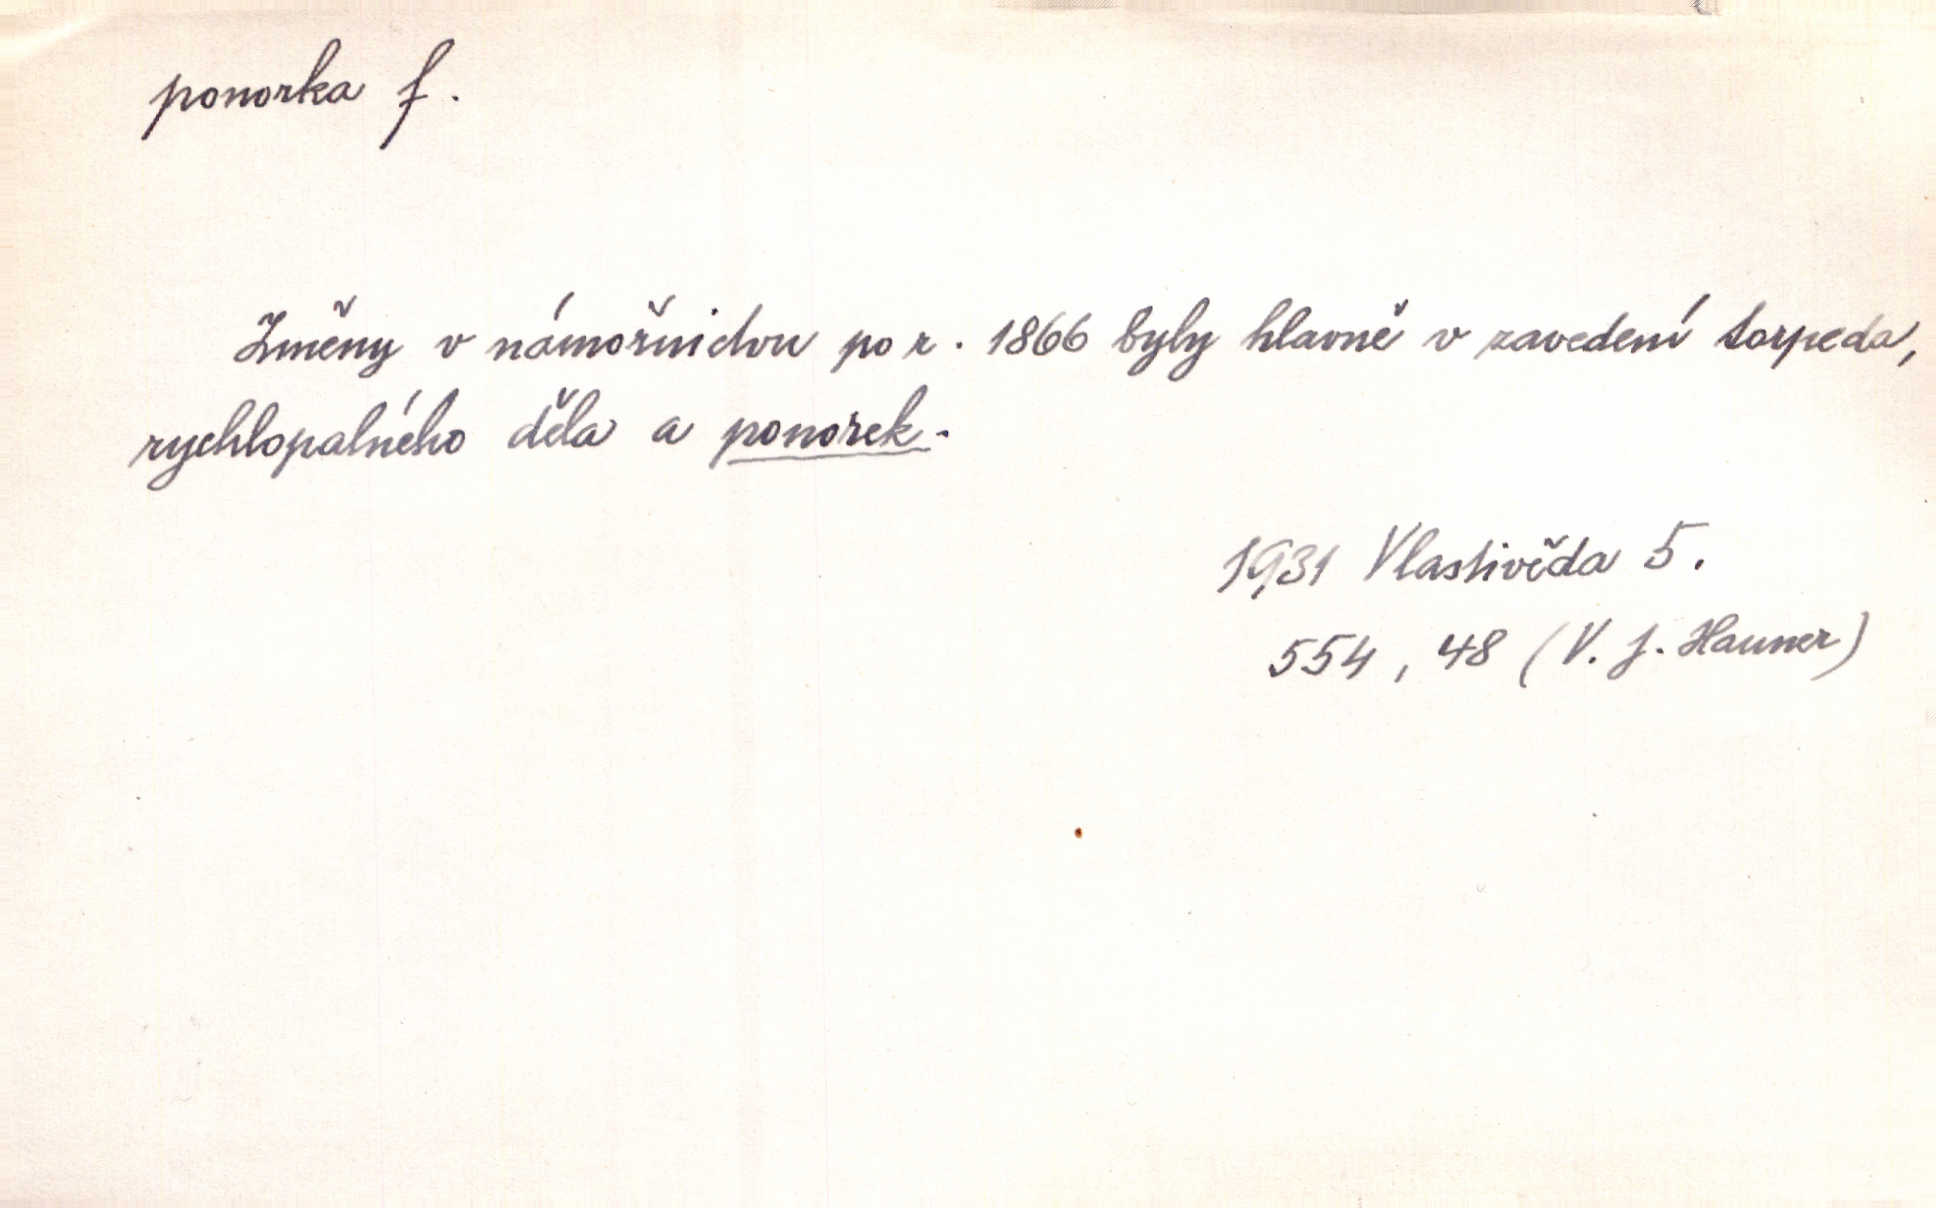 ponorka f.
Změny v námořnictvu po r. 1866 byly hlavně v zavedení torpeda,
rychlopalného děla a ponorek.
1931 Vlastivěda 5.
554, 48 (V. J. Hauner)